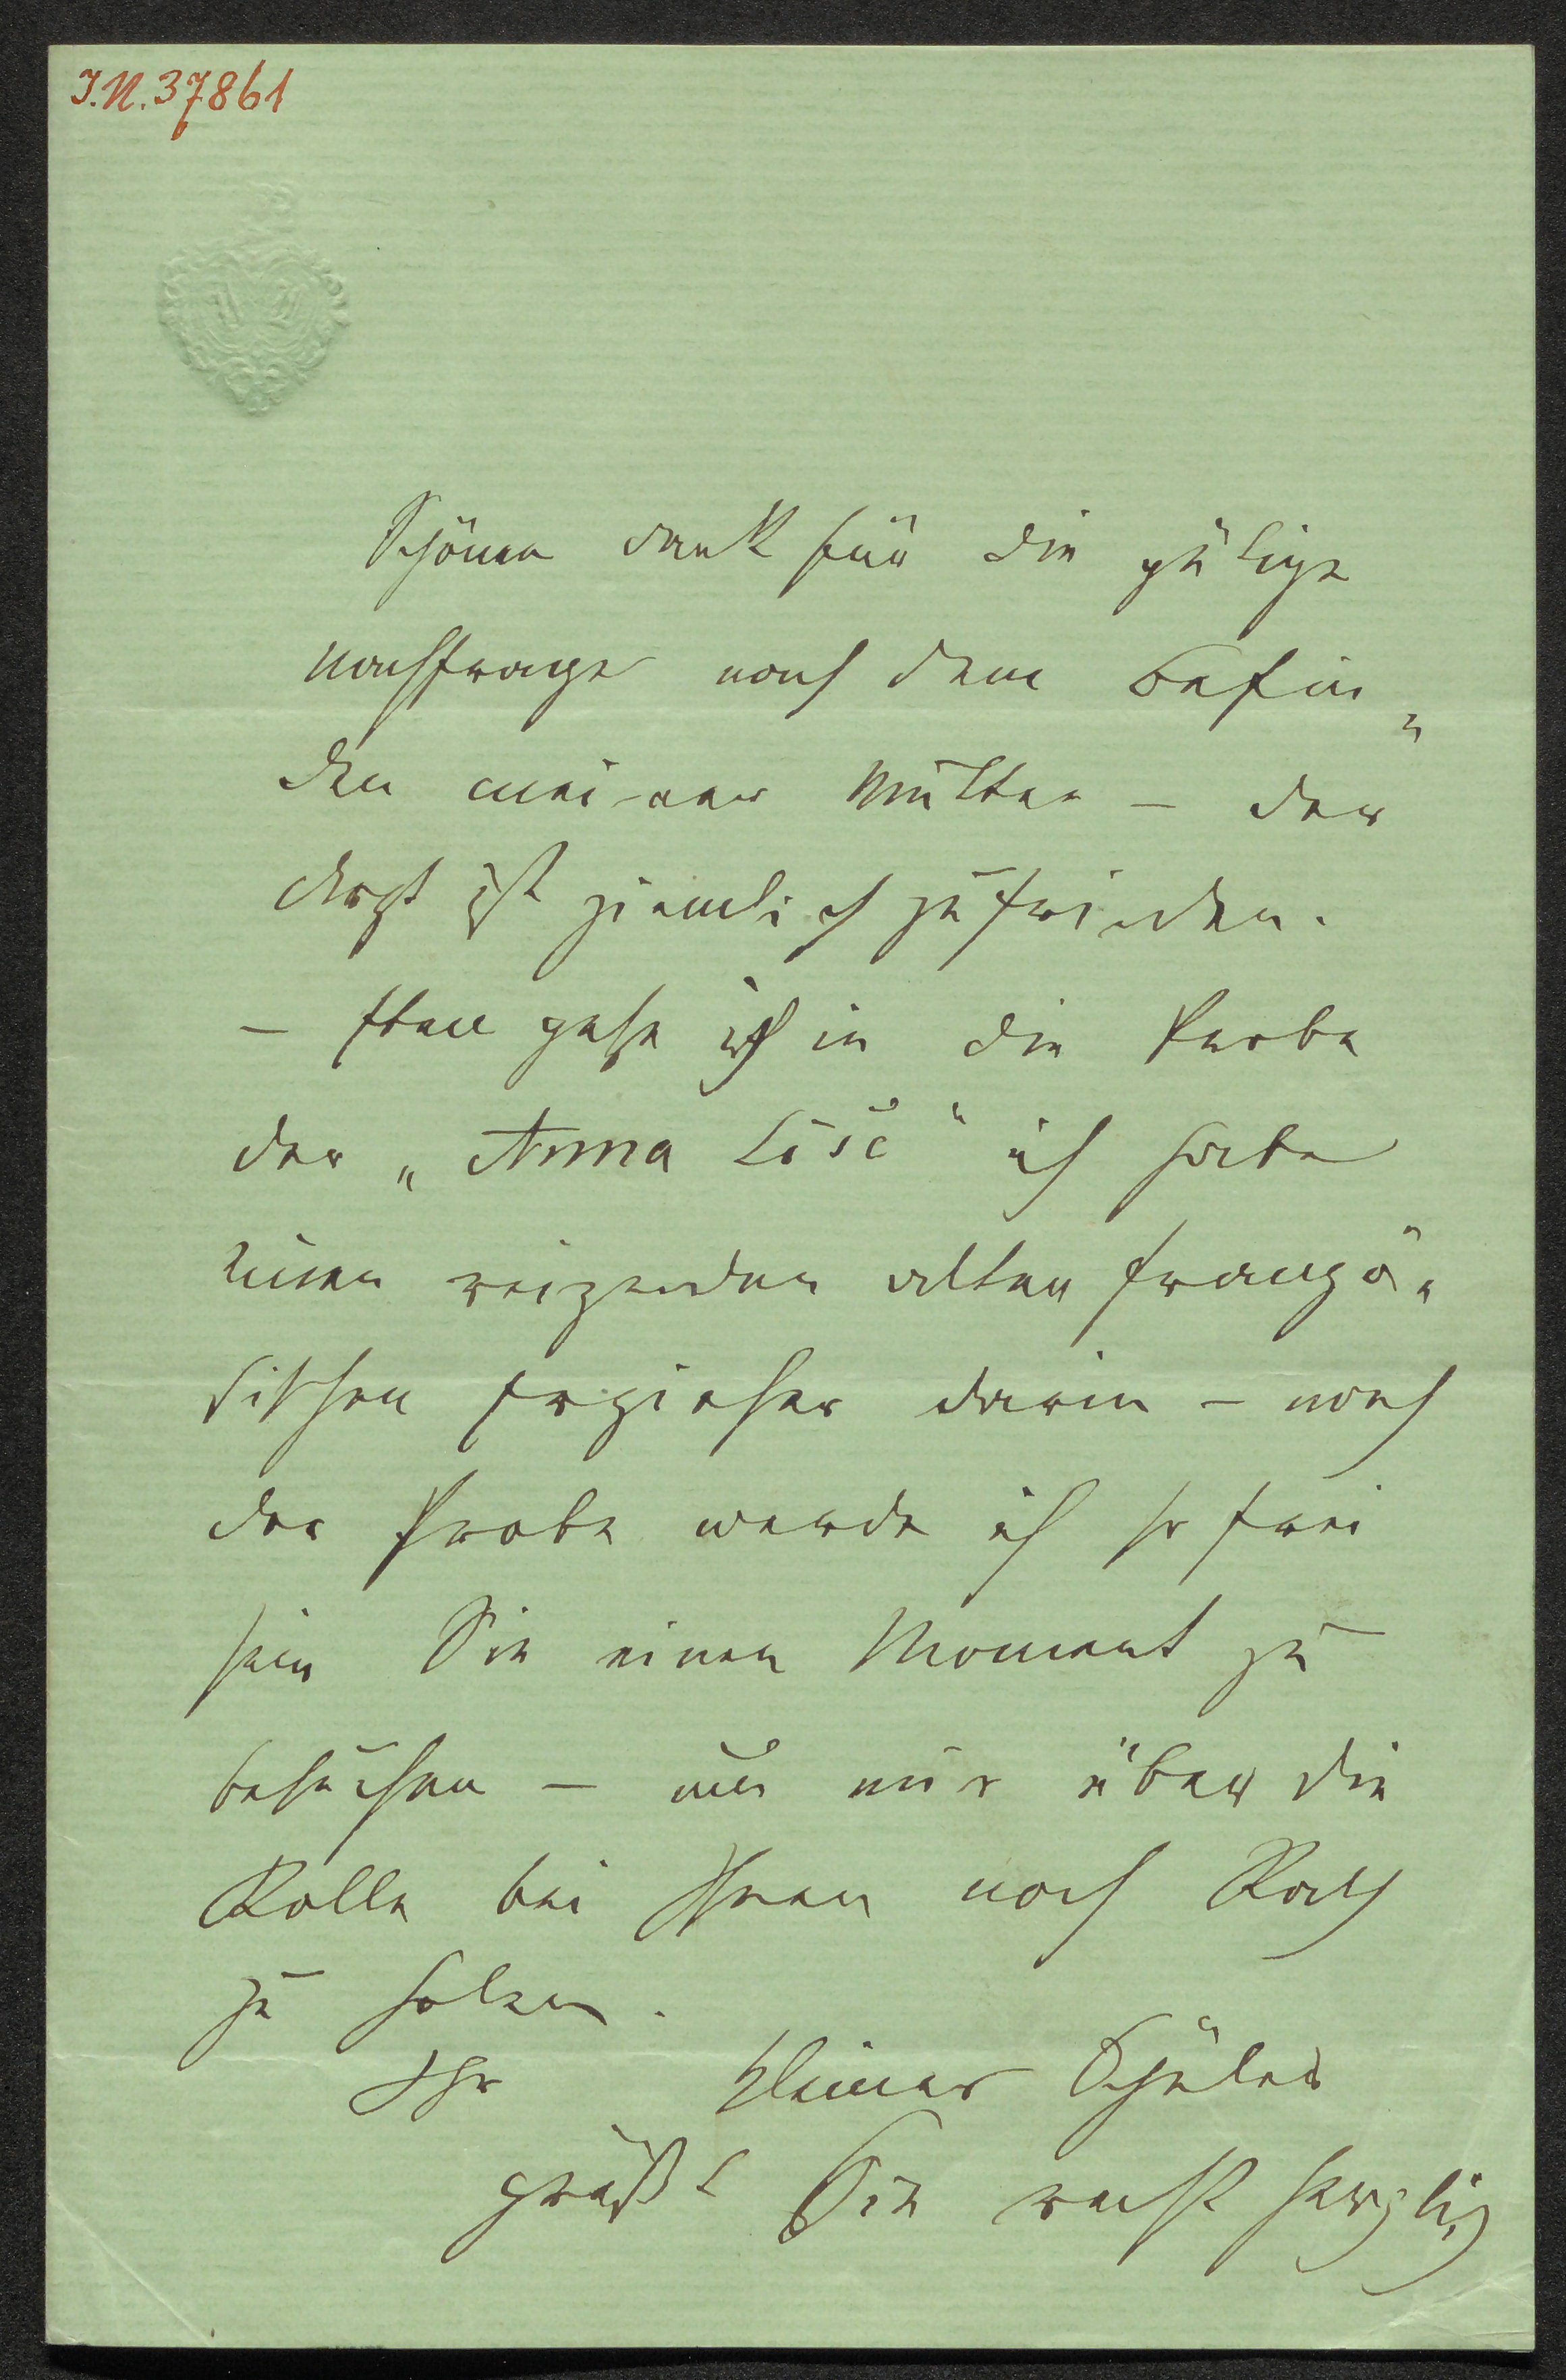 I.N. 37861
Schönen Dank für die gütige
Nachfrage nach dem Befin-
den meiner Mutter – der
Arzt ist ziemlich zufrieden.
– Eben gehe ich in die Probe
der „Anna Lise“ ich habe
einen reizenden alten französ-
sischen Erzieher darin – nach
der Probe werde ich so frei
sein Sie einen Moment zu
besuchen – um mir über die
Rolle bei Ihnen noch Rath
zu holen.
Ihr kleiner Schüler
grüßt Sie recht herzlich